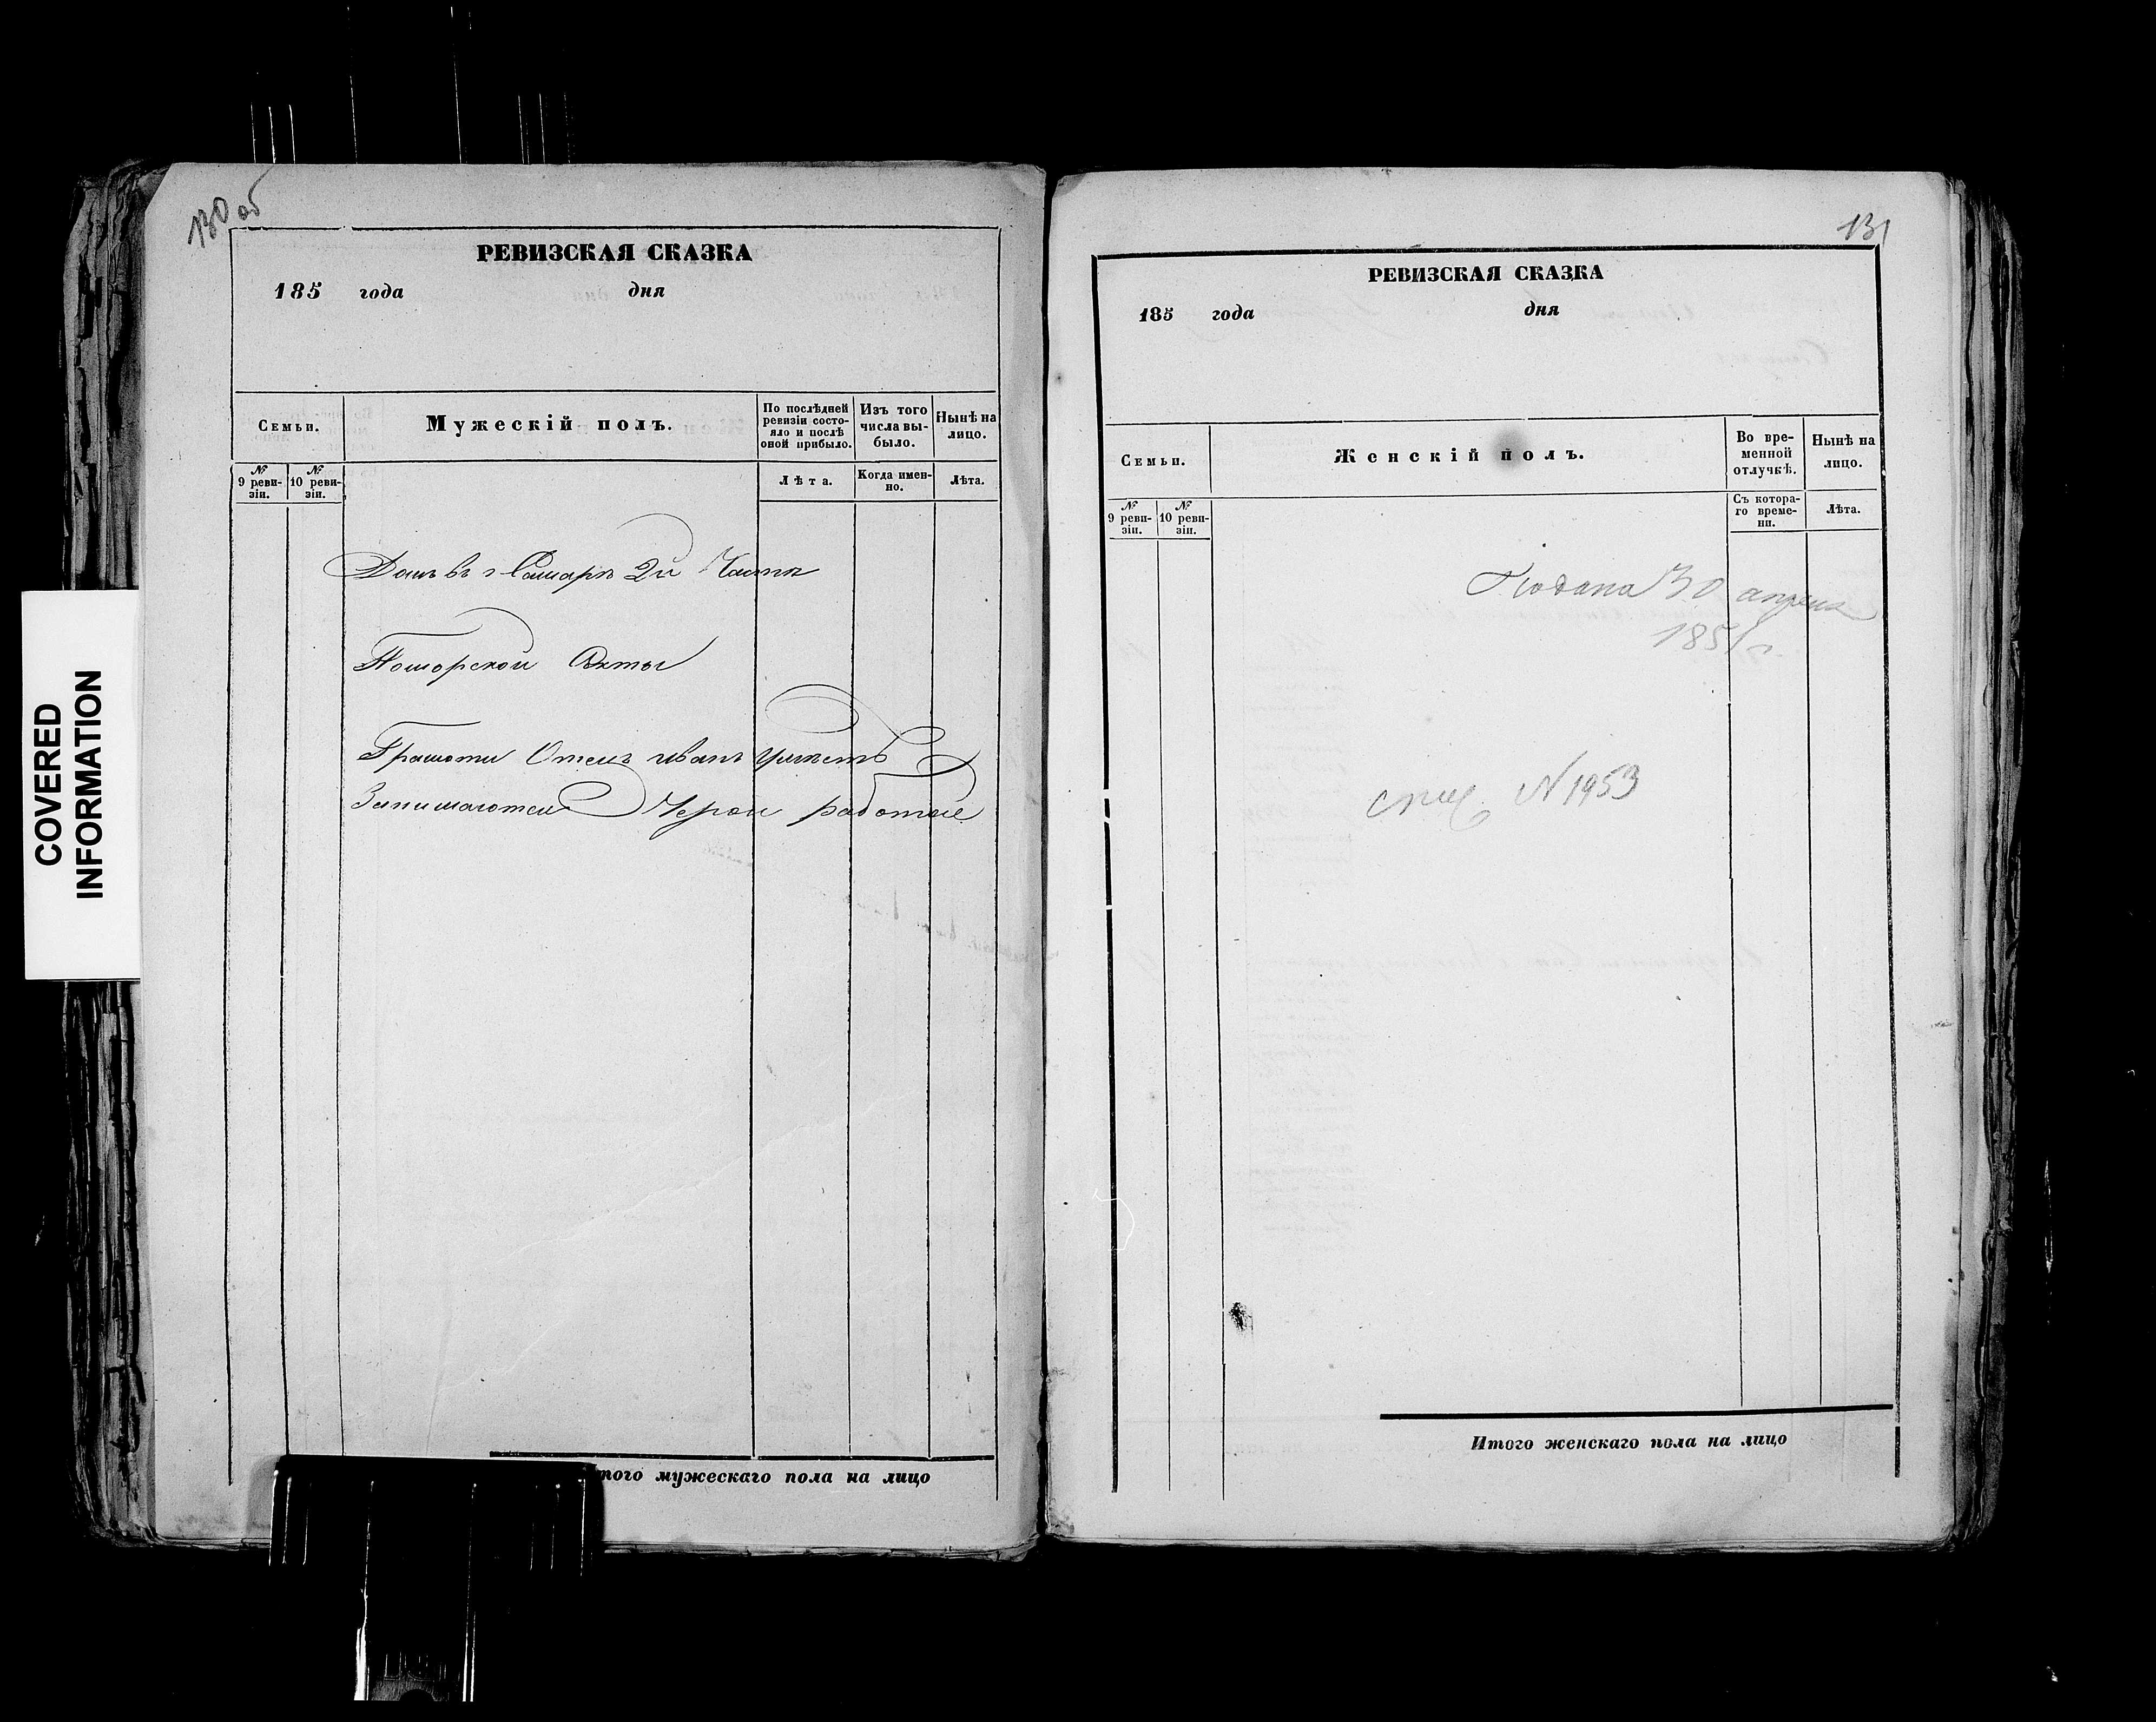 130 об
РЕВИЗСКАЯ СКАЗКА
185 года дня
Семьи.
Мужескій полъ.
По послѣдней ревизіи состояло и послѣ оной прибыло.
Изъ того числа выбыло.
Нынѣ на лицо.
№ 9 ревизіи.
№ 10 ревизіи.
Лѣта.
Когда именно.
Лѣта.
Домъ въ г Самарѣ 2й Части
Поморской Секты
Грамоти Отецъ иванъ умѣетъ
Занимаются Черой работые
Итого мужескаго пола на лицо
COVERED
INFORMATION
131
РЕВИЗСКАЯ СКАЗКА
185 года дня
Семьи.
Женскій полъ.
Во временной отлучкѣ.
Нынѣ на лицо.
№ 9 ревизіи.
№ 10 ревизіи.
Съ котораго времени.
Лѣта.
Подана 30 апреля
1851 г.
N 1953
Итого женскаго пола на лицо